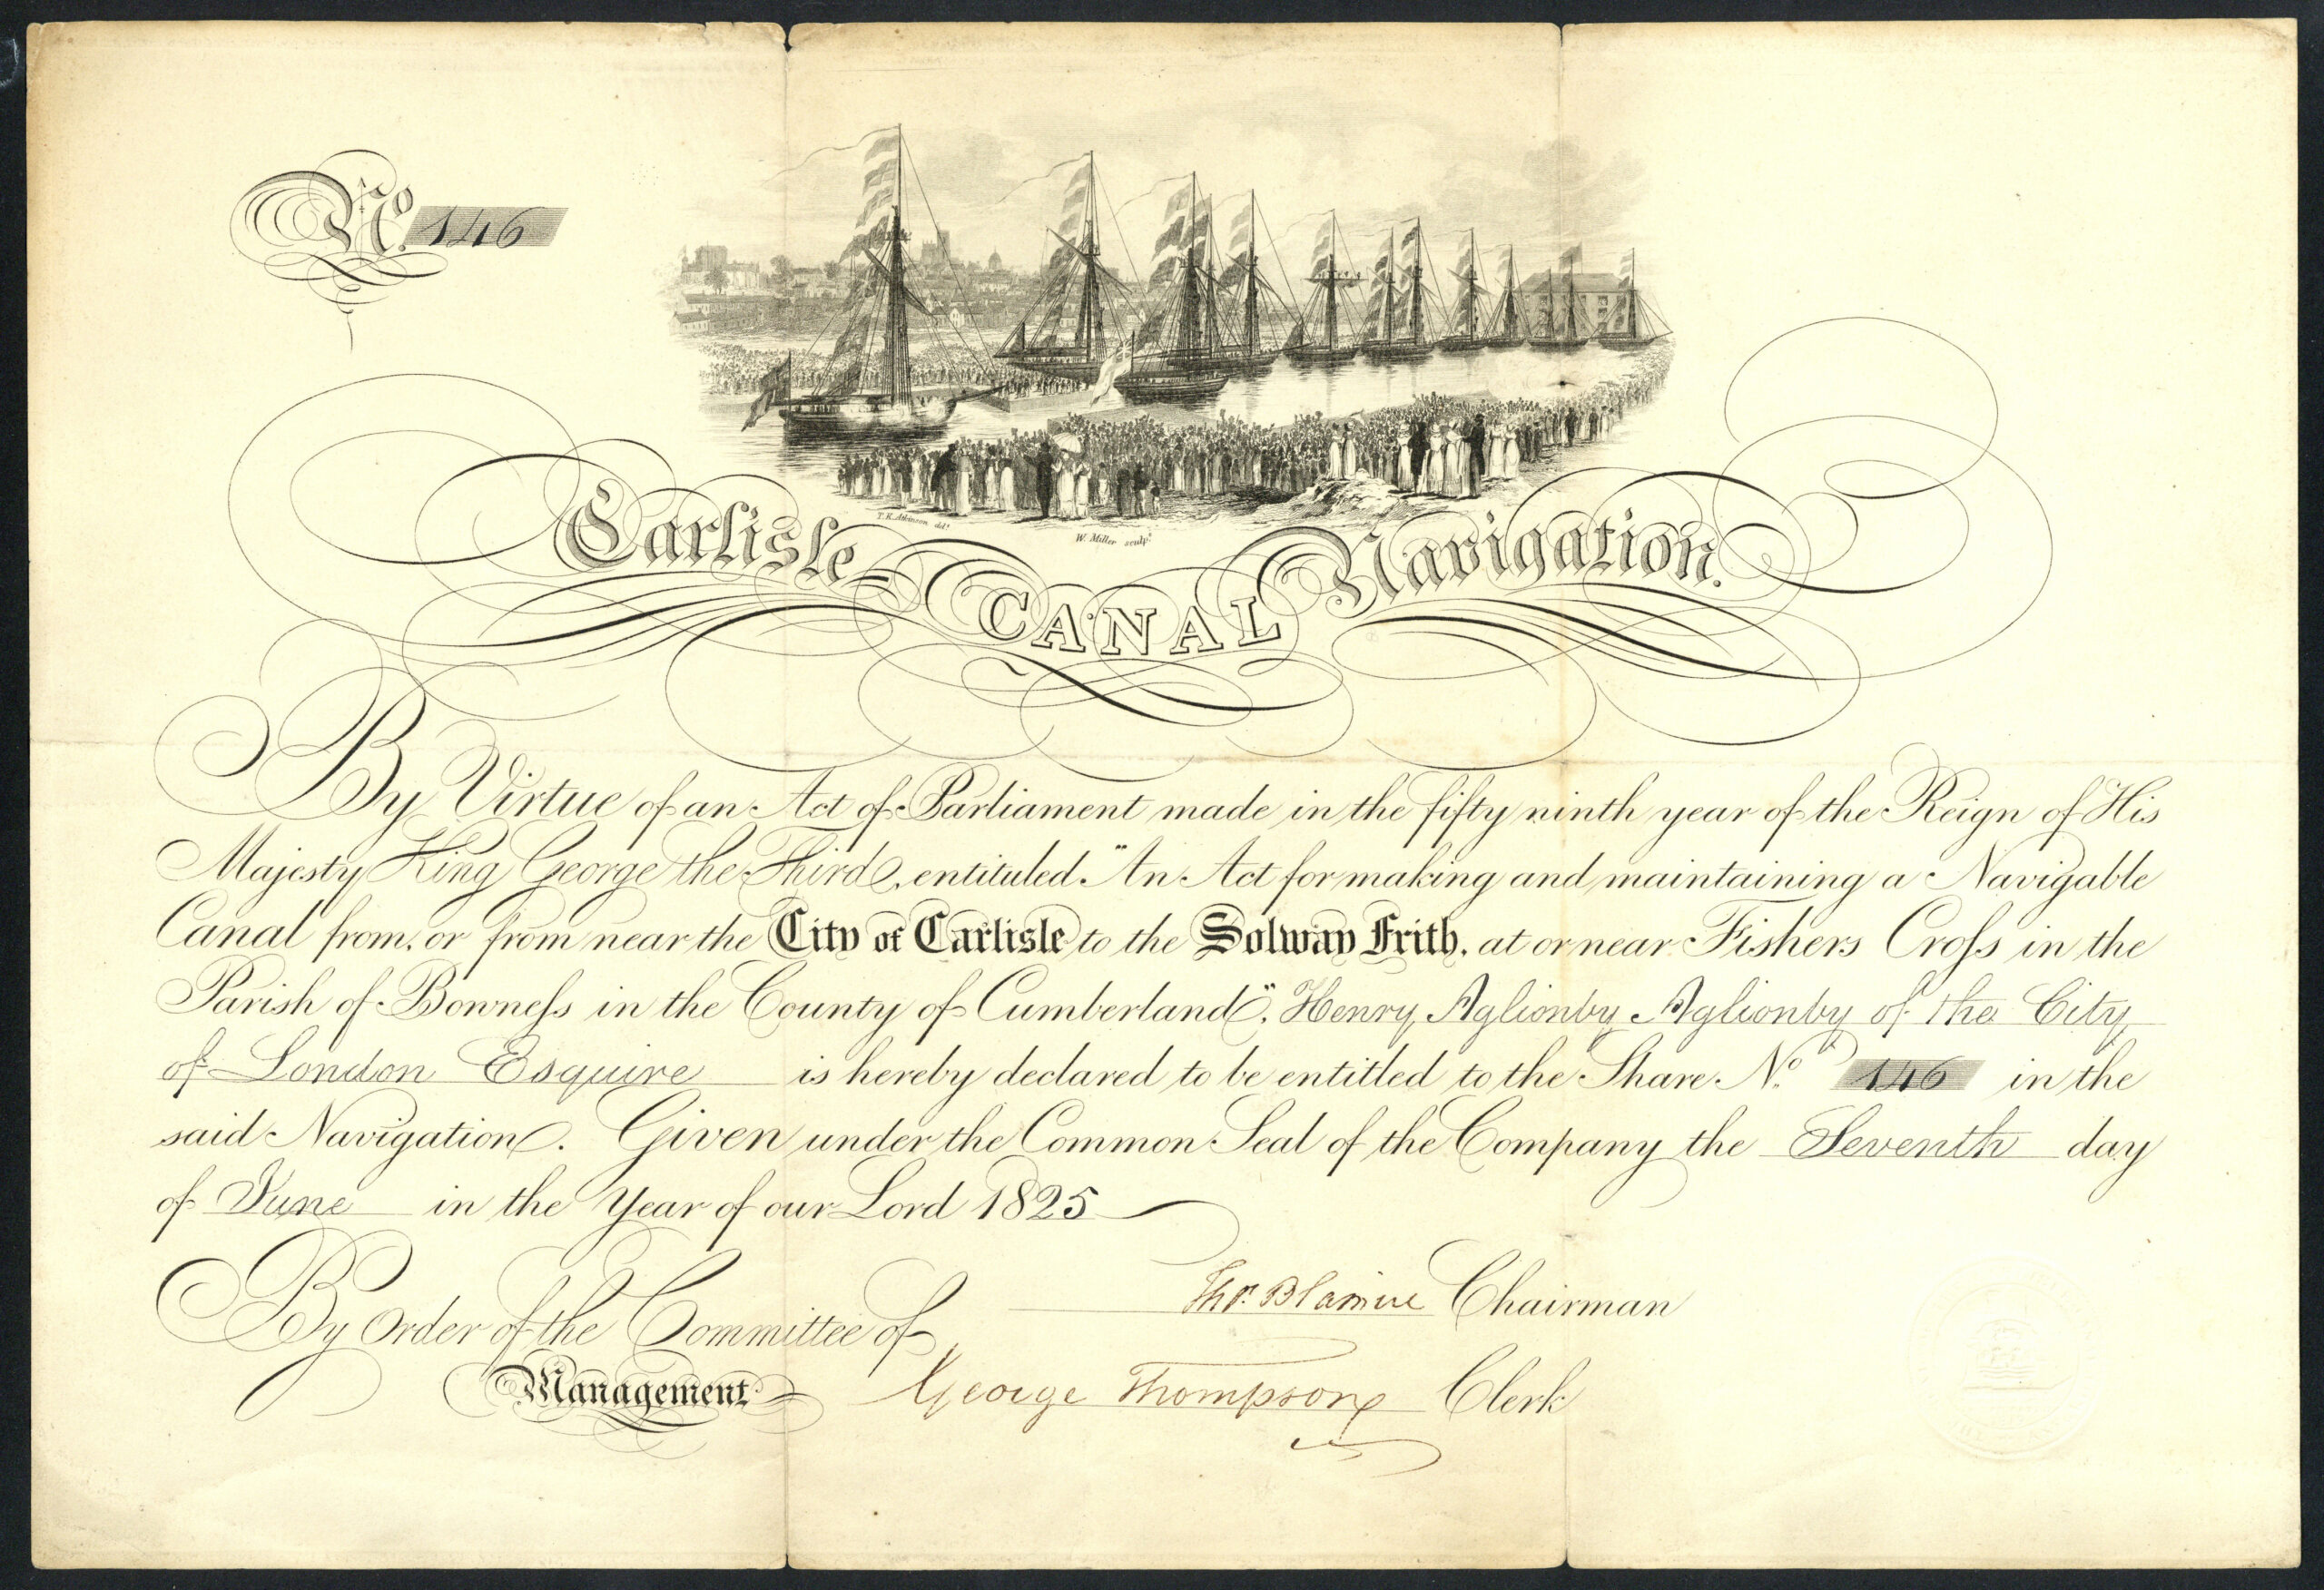 No. 146
T. K. Atkinson delt.
W. Miller sculpt.
Carlisle
CANAL
Navigation.
By Virtue of an Act of Parliament made in the fifty ninth year of the Reign of His
Majesty King George the Third, entituled "An Act for making and maintaining a Navigable
Canal from, or from near the City of Carlisle to the Solway Frith, at or near Fishers Croſs in the
Parish of Bowneſs in the County of Cumberland", Henry Aglionby Aglionby of the City
of London Esquire is hereby declared to be entitled to the Share No. 146 in the
said Navigation. Given under the Common Seal of the Company the Seventh day
of June in the Year of our Lord 1825
By Order of the Committee of
Management
Thos. Blamire Chairman
George Thompson Clerk